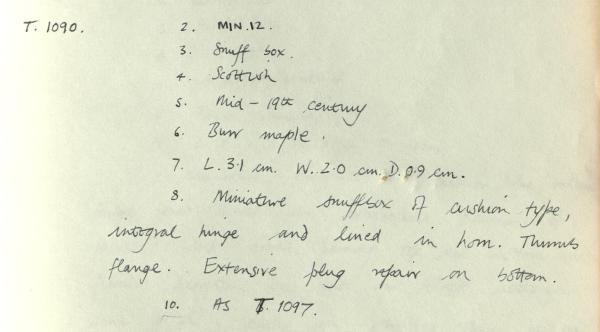 T. 1090. 2. MIN.12.
3. Snuff box.
4. Scottish
5. Mid-19th century
6. Burr maple.
7. L. 3.1 cm. W. 2.0 cm. D. 0.9 cm.
8. Miniature snuffbox of cushion type,
integral hinge and lined in horn. Thumb
flange. Extensive plug repair on bottom.
10. As T. 1097.